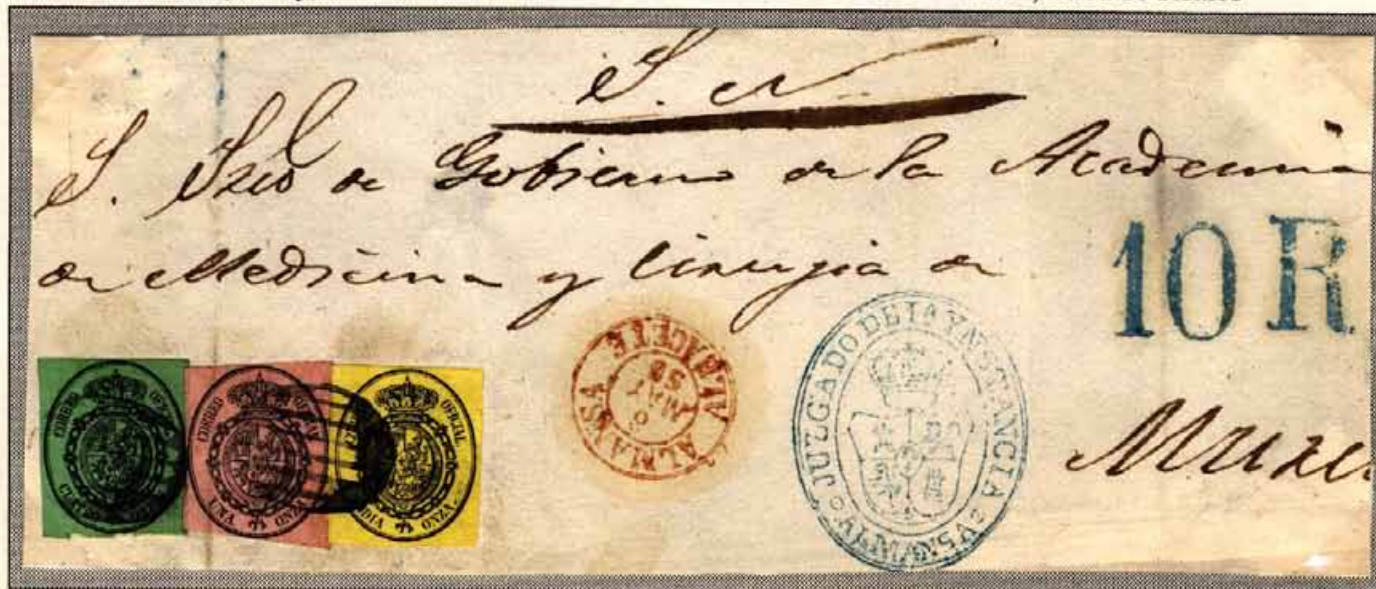 S. N.
S. Srio de Gobierno de la Academia
de Medicina y Cirugia de
10 R
Murci
CORREO OFICIAL
CUATRO
CORREO OFICIAL
UNA ONZA
CORREO OFICIAL
MEDIA ONZA
ALMANSA
ALBACETE
MAY
58
JUZGADO DE 1A YNSTANCIA
ALMANSA